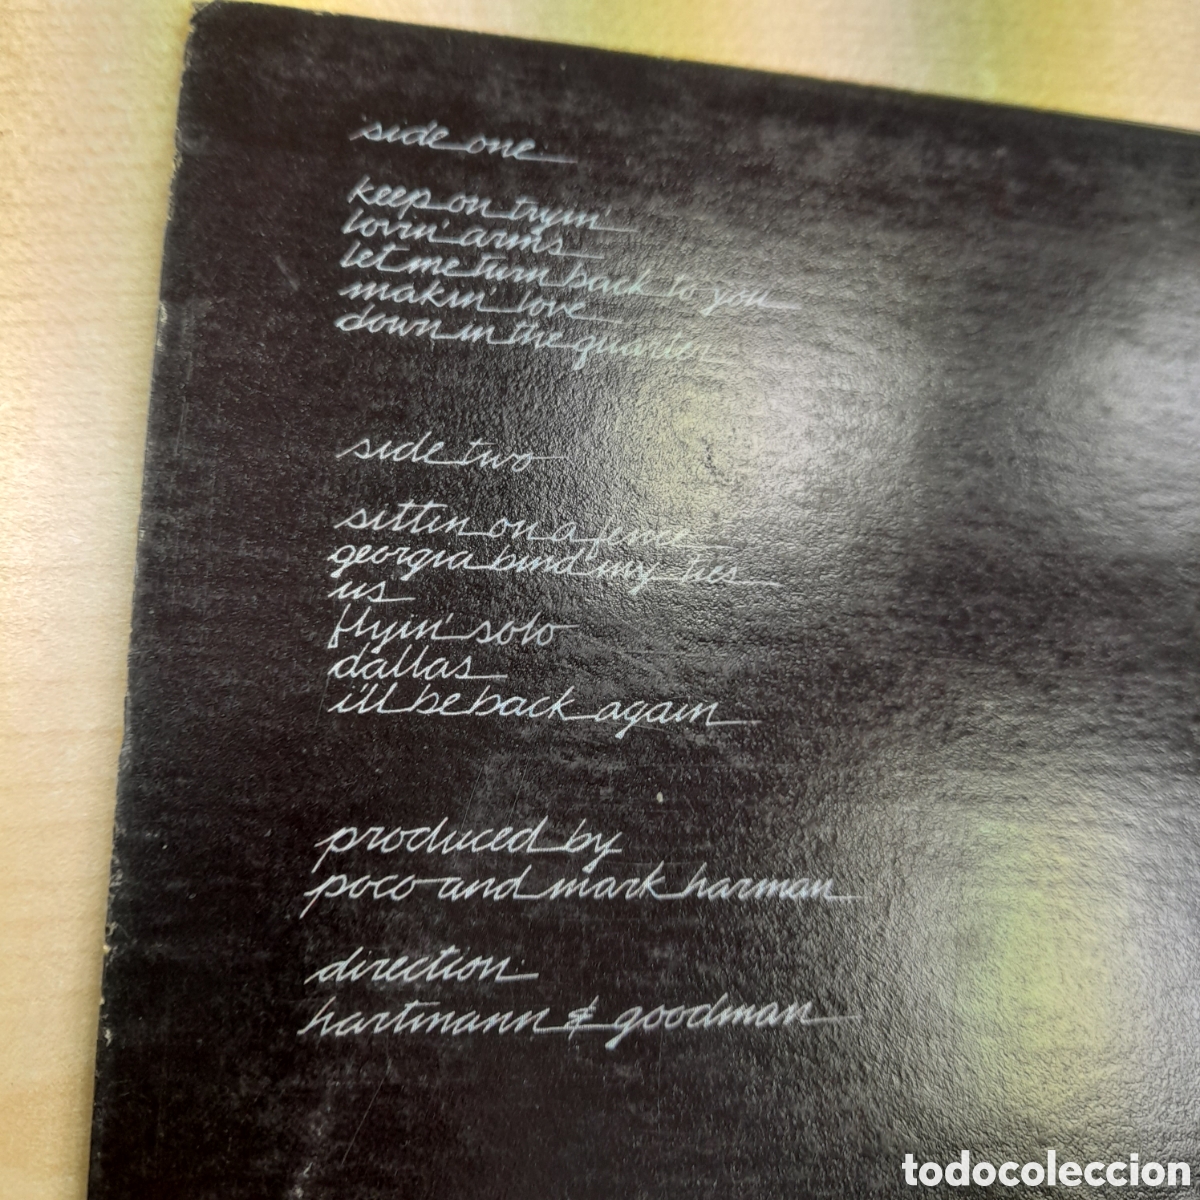 side one
keep on tryin'
lovin' arms
let me turn back to you
makin' love
down in the quarter
side two
sittin on a fence
georgia bind my ties
us
flyin' solo
dallas
i'll be back again
produced by
poco and mark harman
direction
hartmann & goodman
todocoleccion